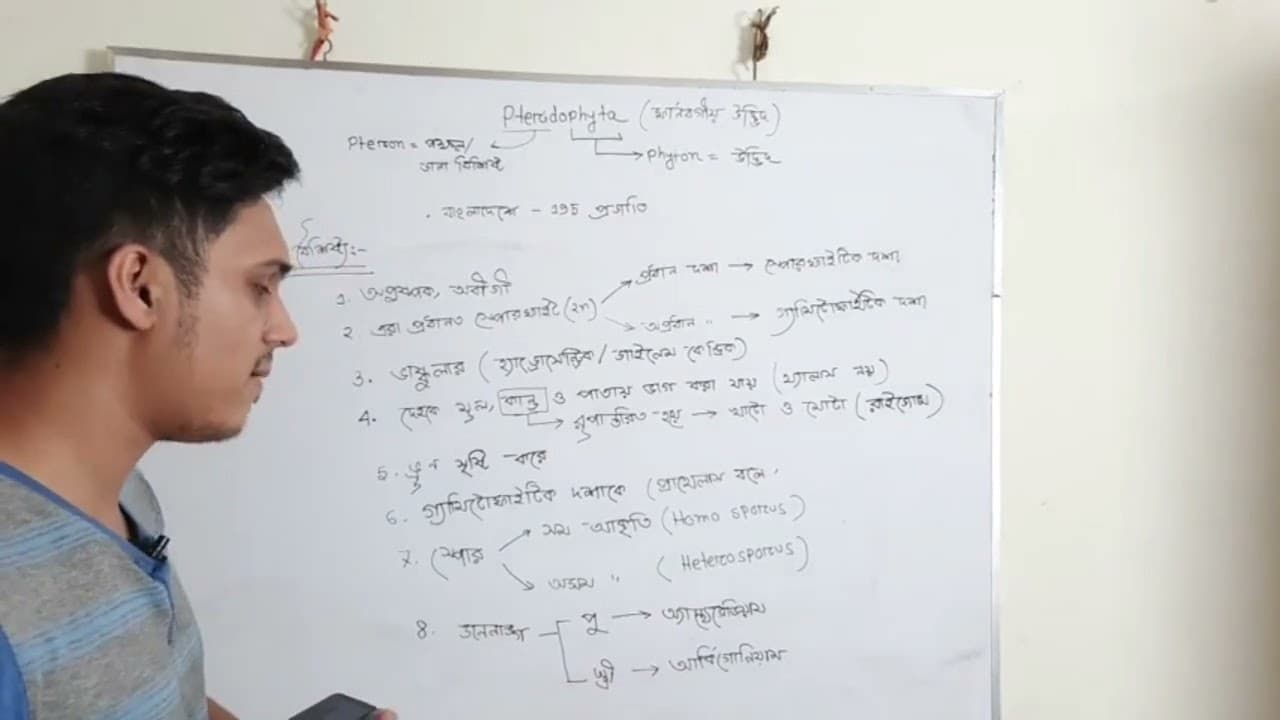 Pteridophyta (ফার্নবর্গীয় উদ্ভিদ)
Pteron = পক্ষল/
ডানা বিশিষ্ট
Phyton = উদ্ভিদ
. বাংলাদেশে - 195 প্রজাতি
বৈশিষ্ট্য :-
1. অপুষ্পক, অবীজী
2. এরা প্রধানত স্পোরোফাইট (2n)
প্রধান দশা → স্পোরোফাইটিক দশা
অপ্রধান " → গ্যামিটোফাইটিক দশা
3. ভাস্কুলার (হ্যাড্রোসেন্ট্রিক/ জাইলেম কেন্দ্রিক)
4. দেহকে মূল, কান্ড ও পাতায় ভাগ করা যায় (থ্যালাস নয়)
→ রূপান্তরিত হয় → খাটো ও মোটা (রাইজোম)
5. ভ্রুণ সৃষ্টি করে
6. গ্যামিটোফাইটিক দশাকে প্রোথেলাস বলে.
7. স্পোর
সম আকৃতি (Homosporus)
অসম " (Heterosporus)
8. জননাঙ্গ
পুং → অ্যান্থেরিডিয়াম
স্ত্রী → আর্কিগোনিয়াম